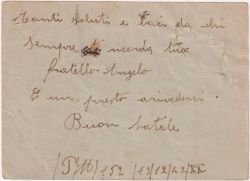 Tanti saluti e baci da chi
sempre ti ricorda tuo
fratello Angelo
E un presto arivederci
Buon natale
(PM) 152 (13/12/42/XX